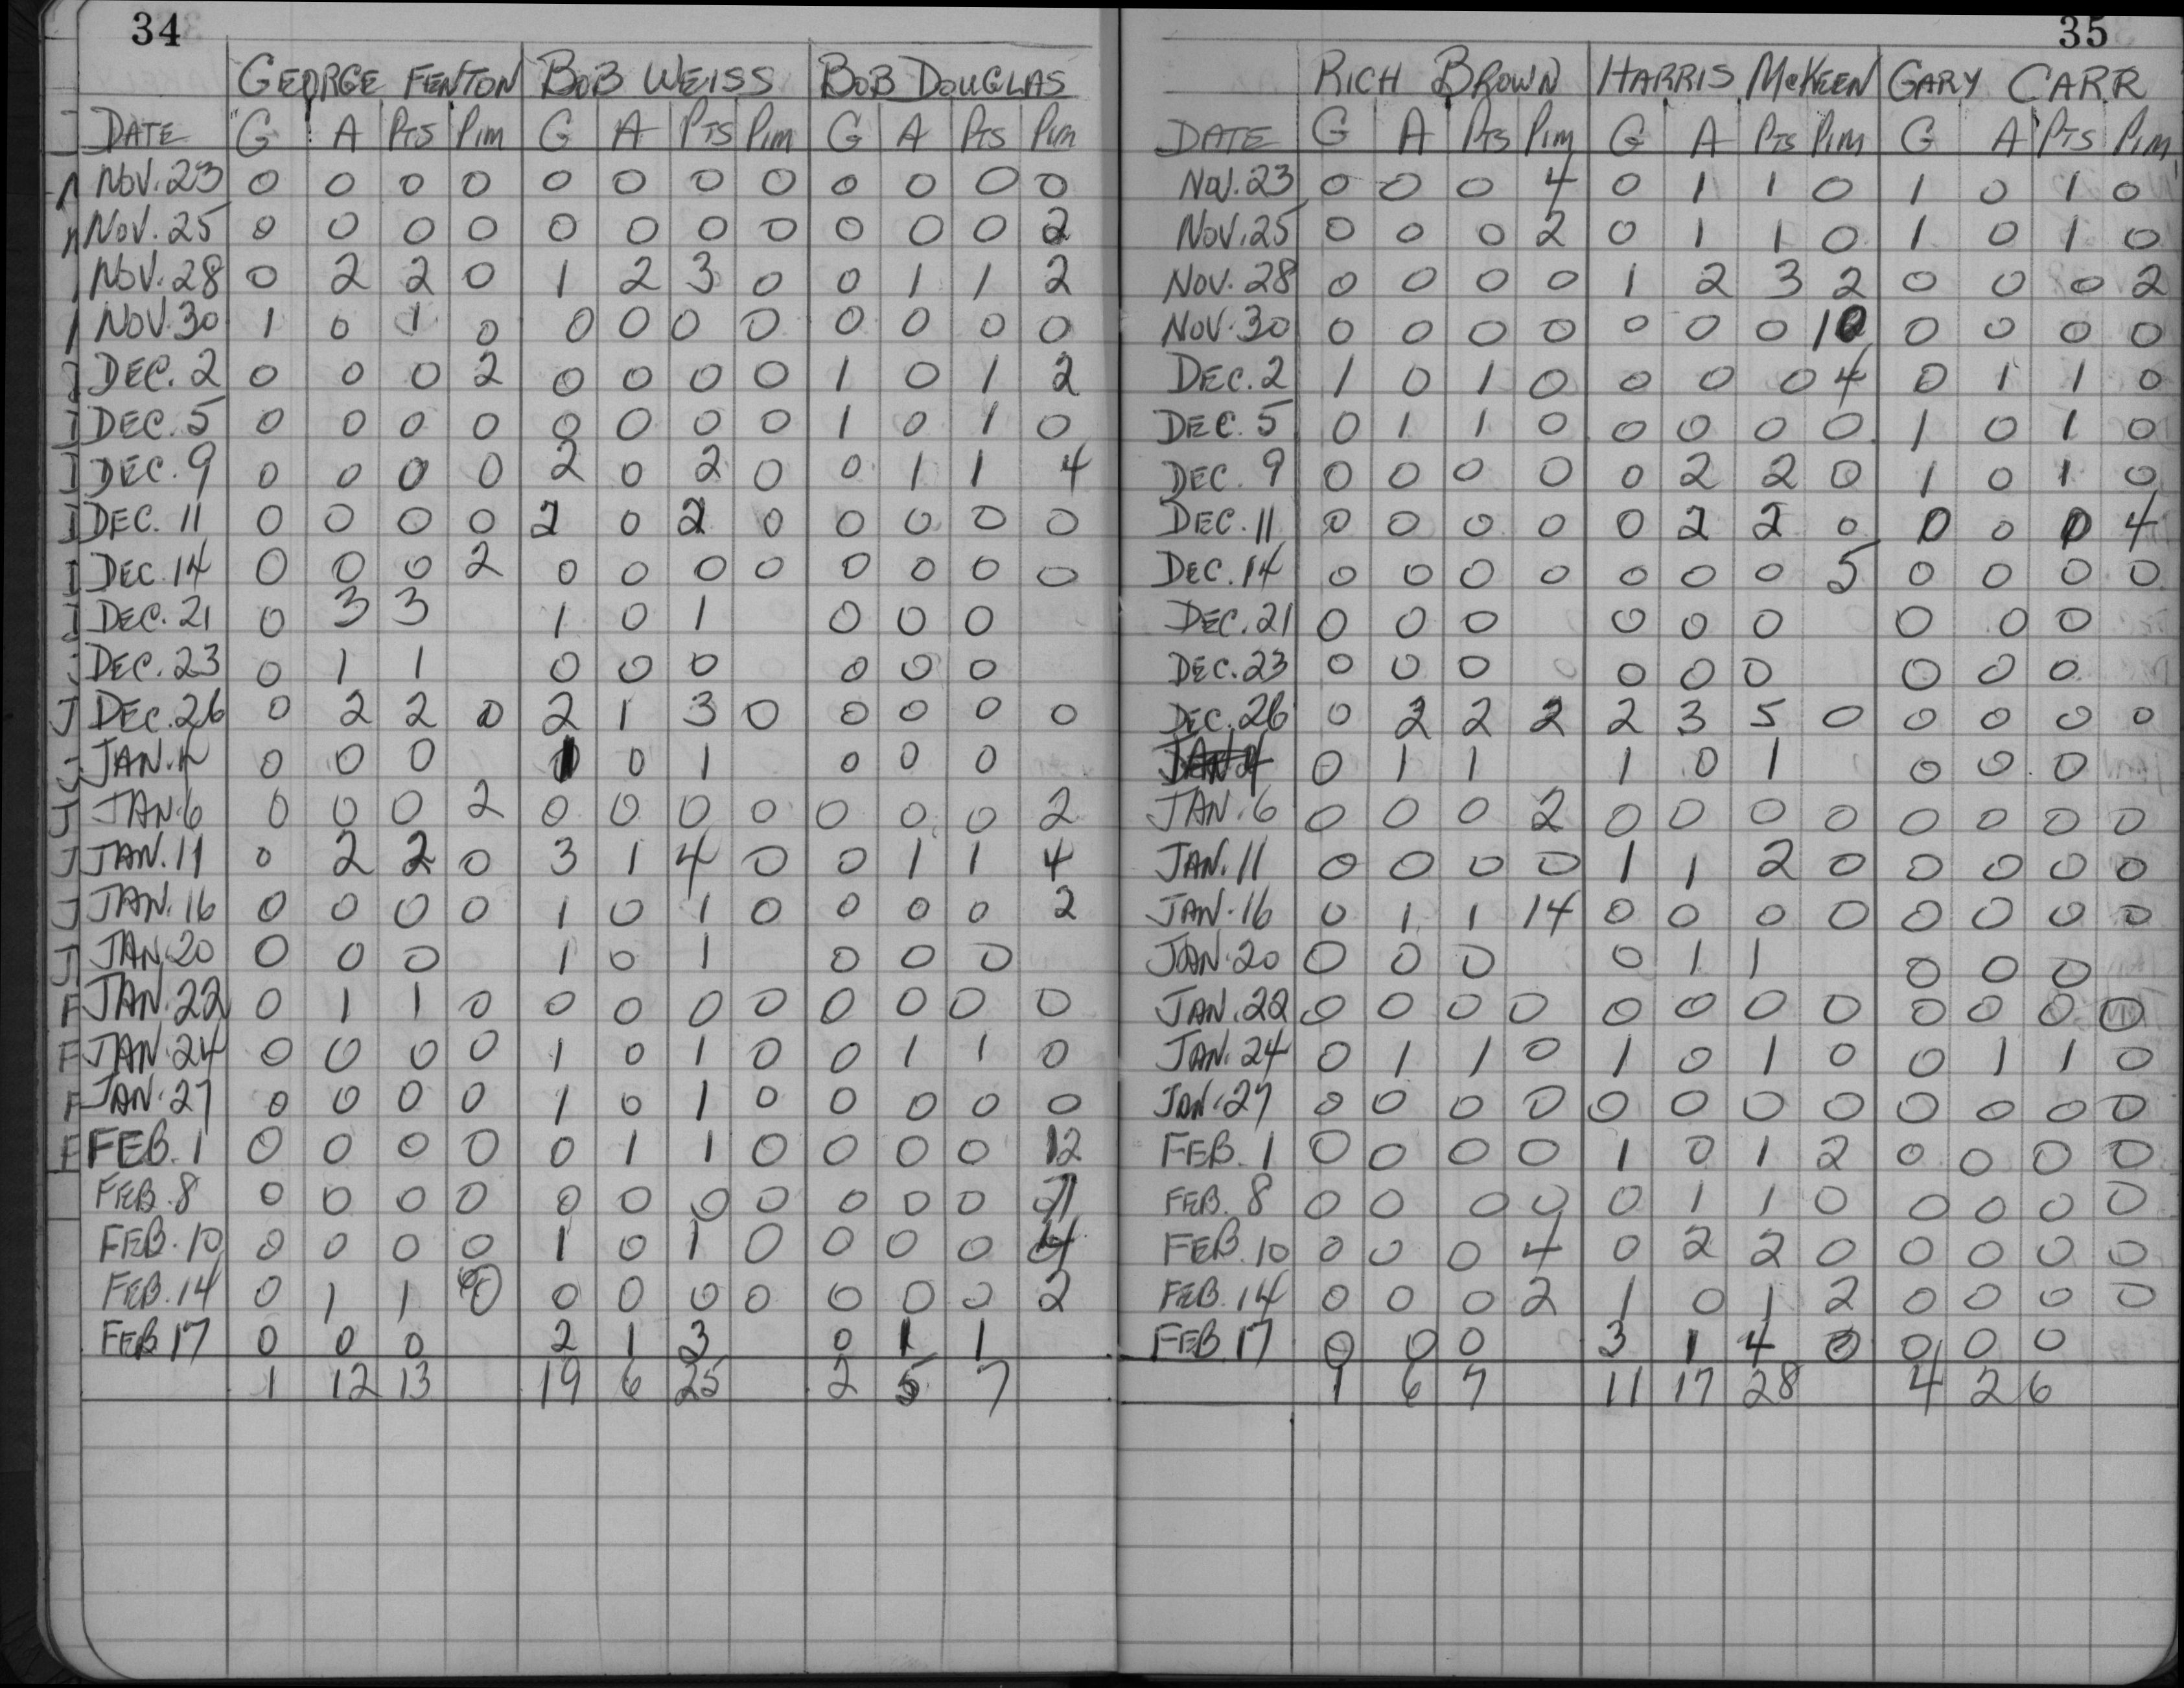 34
GEORGE FENTON BOB WEISS BOB DOUGLAS
DATE G A PTS PIM G A PTS PIM G A PTS PIM
NOV. 23 0 0 0 0 0 0 0 0 0 0 0 0
NOV. 25 0 0 0 0 0 0 0 0 0 0 0 2
NOV. 28 0 2 2 0 1 2 3 0 0 1 1 2
NOV. 30 1 0 1 0 0 0 0 0 0 0 0 0
DEC. 2 0 0 0 2 0 0 0 0 1 0 1 2
DEC. 5 0 0 0 0 0 0 0 0 1 0 1 0
DEC. 9 0 0 0 0 2 0 2 0 0 1 1 4
DEC. 11 0 0 0 0 2 0 2 0 0 0 0 0
DEC. 14 0 0 0 2 0 0 0 0 0 0 0 0
DEC. 21 0 3 3 1 0 1 0 0 0
DEC. 23 0 1 1 0 0 0 0 0 0
DEC. 26 0 2 2 0 2 1 3 0 0 0 0 0
JAN. 4 0 0 0 1 0 1 0 0 0
JAN. 6 0 0 0 2 0 0 0 0 0 0 0 2
JAN. 11 0 2 2 0 3 1 4 0 0 1 1 4
JAN. 16 0 0 0 0 1 0 1 0 0 0 0 2
JAN. 20 0 0 0 1 0 1 0 0 0
JAN. 22 0 1 1 0 0 0 0 0 0 0 0 0
JAN. 24 0 0 0 0 1 0 1 0 0 1 1 0
JAN. 27 0 0 0 0 1 0 1 0 0 0 0 0
FEB. 1 0 0 0 0 0 1 1 0 0 0 0 12
FEB. 8 0 0 0 0 0 0 0 0 0 0 0
FEB. 10 0 0 0 0 1 0 1 0 0 0 0
FEB. 14 0 1 1 0 0 0 0 0 0 0 2
FEB 17 0 0 0 2 1 3 0 1 1
1 12 13 19 6 25 2 5 7
35
RICH BROWN HARRIS MCKEEN GARY CARR
DATE G A PTS PIM G A PTS PIM G A PTS PIM
NOV. 23 0 0 0 4 0 1 1 0 1 0 1 0
NOV. 25 0 0 0 2 0 1 1 0 1 0 1 0
NOV. 28 0 0 0 0 1 2 3 2 0 0 0 2
NOV. 30 0 0 0 0 0 0 0 10 0 0 0 0
DEC. 2 1 0 1 0 0 0 0 4 0 1 1 0
DEC. 5 0 1 1 0 0 0 0 0 1 0 1 0
DEC. 9 0 0 0 0 0 2 2 0 1 0 1 0
DEC. 11 0 0 0 0 0 2 2 0 0 0 0 4
DEC. 14 0 0 0 0 0 0 0 5 0 0 0 0
DEC. 21 0 0 0 0 0 0 0 0 0
DEC. 23 0 0 0 0 0 0 0 0 0
DEC. 26 0 2 2 2 2 3 5 0 0 0 0 0
JAN 4 0 1 1 1 0 1 0 0 0
JAN. 6 0 0 0 2 0 0 0 0 0 0 0 0
JAN. 11 0 0 0 0 1 1 2 0 0 0 0 0
JAN. 16 0 1 1 14 0 0 0 0 0 0 0 0
JAN. 20 0 0 0 0 1 1 0 0 0
JAN. 22 0 0 0 0 0 0 0 0 0 0 0 0
JAN. 24 0 1 1 0 1 0 1 0 0 1 1 0
JAN. 27 0 0 0 0 0 0 0 0 0 0 0 0
FEB. 1 0 0 0 0 1 0 1 2 0 0 0 0
FEB. 8 0 0 0 0 0 1 1 0 0 0 0 0
FEB. 10 0 0 0 4 0 2 2 0 0 0 0 0
FEB. 14 0 0 0 2 1 0 1 2 0 0 0 0
FEB. 17 0 0 0 3 1 4 0 0 0
1 6 7 11 17 28 4 2 6